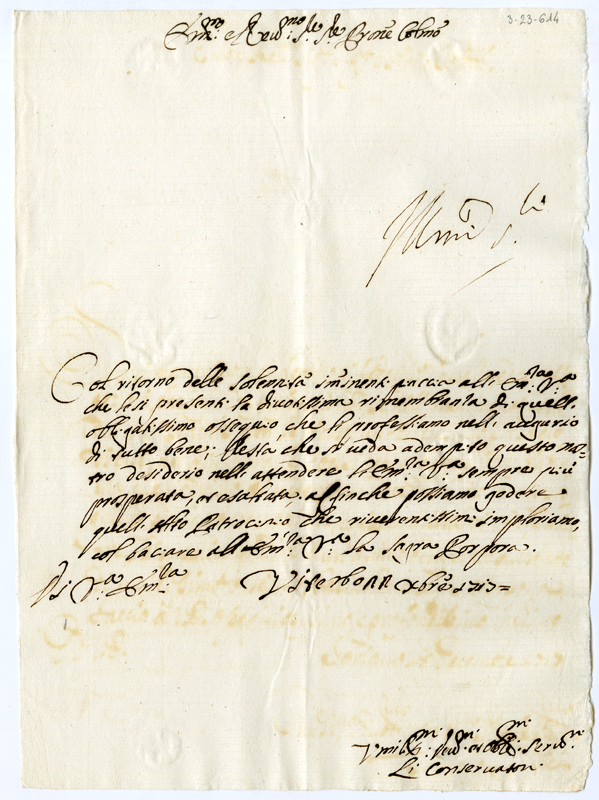 3-23-614
Em.mo e Rev.mo Sig.re Sig.re Prone Colmo
Col ritorno delle solennità iminenti piaccia all' Em.za V.a
che lesi presenti la divotissima rimembranza di quell'
obligatissimo ossequio, che li professiamo nell' augurio
di tutto bene; Restà che si veda adempito questo no=
tro desiderio nell' attendere l' Em.za V.a sempre più
prosperata, et esaltata, affinche possiamo godere
quell' Alto Patrocinio che riverentissimi imploriamo,
col baciare all' Em.za V.a la sagra Porpora.
Di V.a Em.za Viterbo Xbre 1717=
Umil.mi Dev.mi et Obl.mi Serv.ri
Li Conservatori